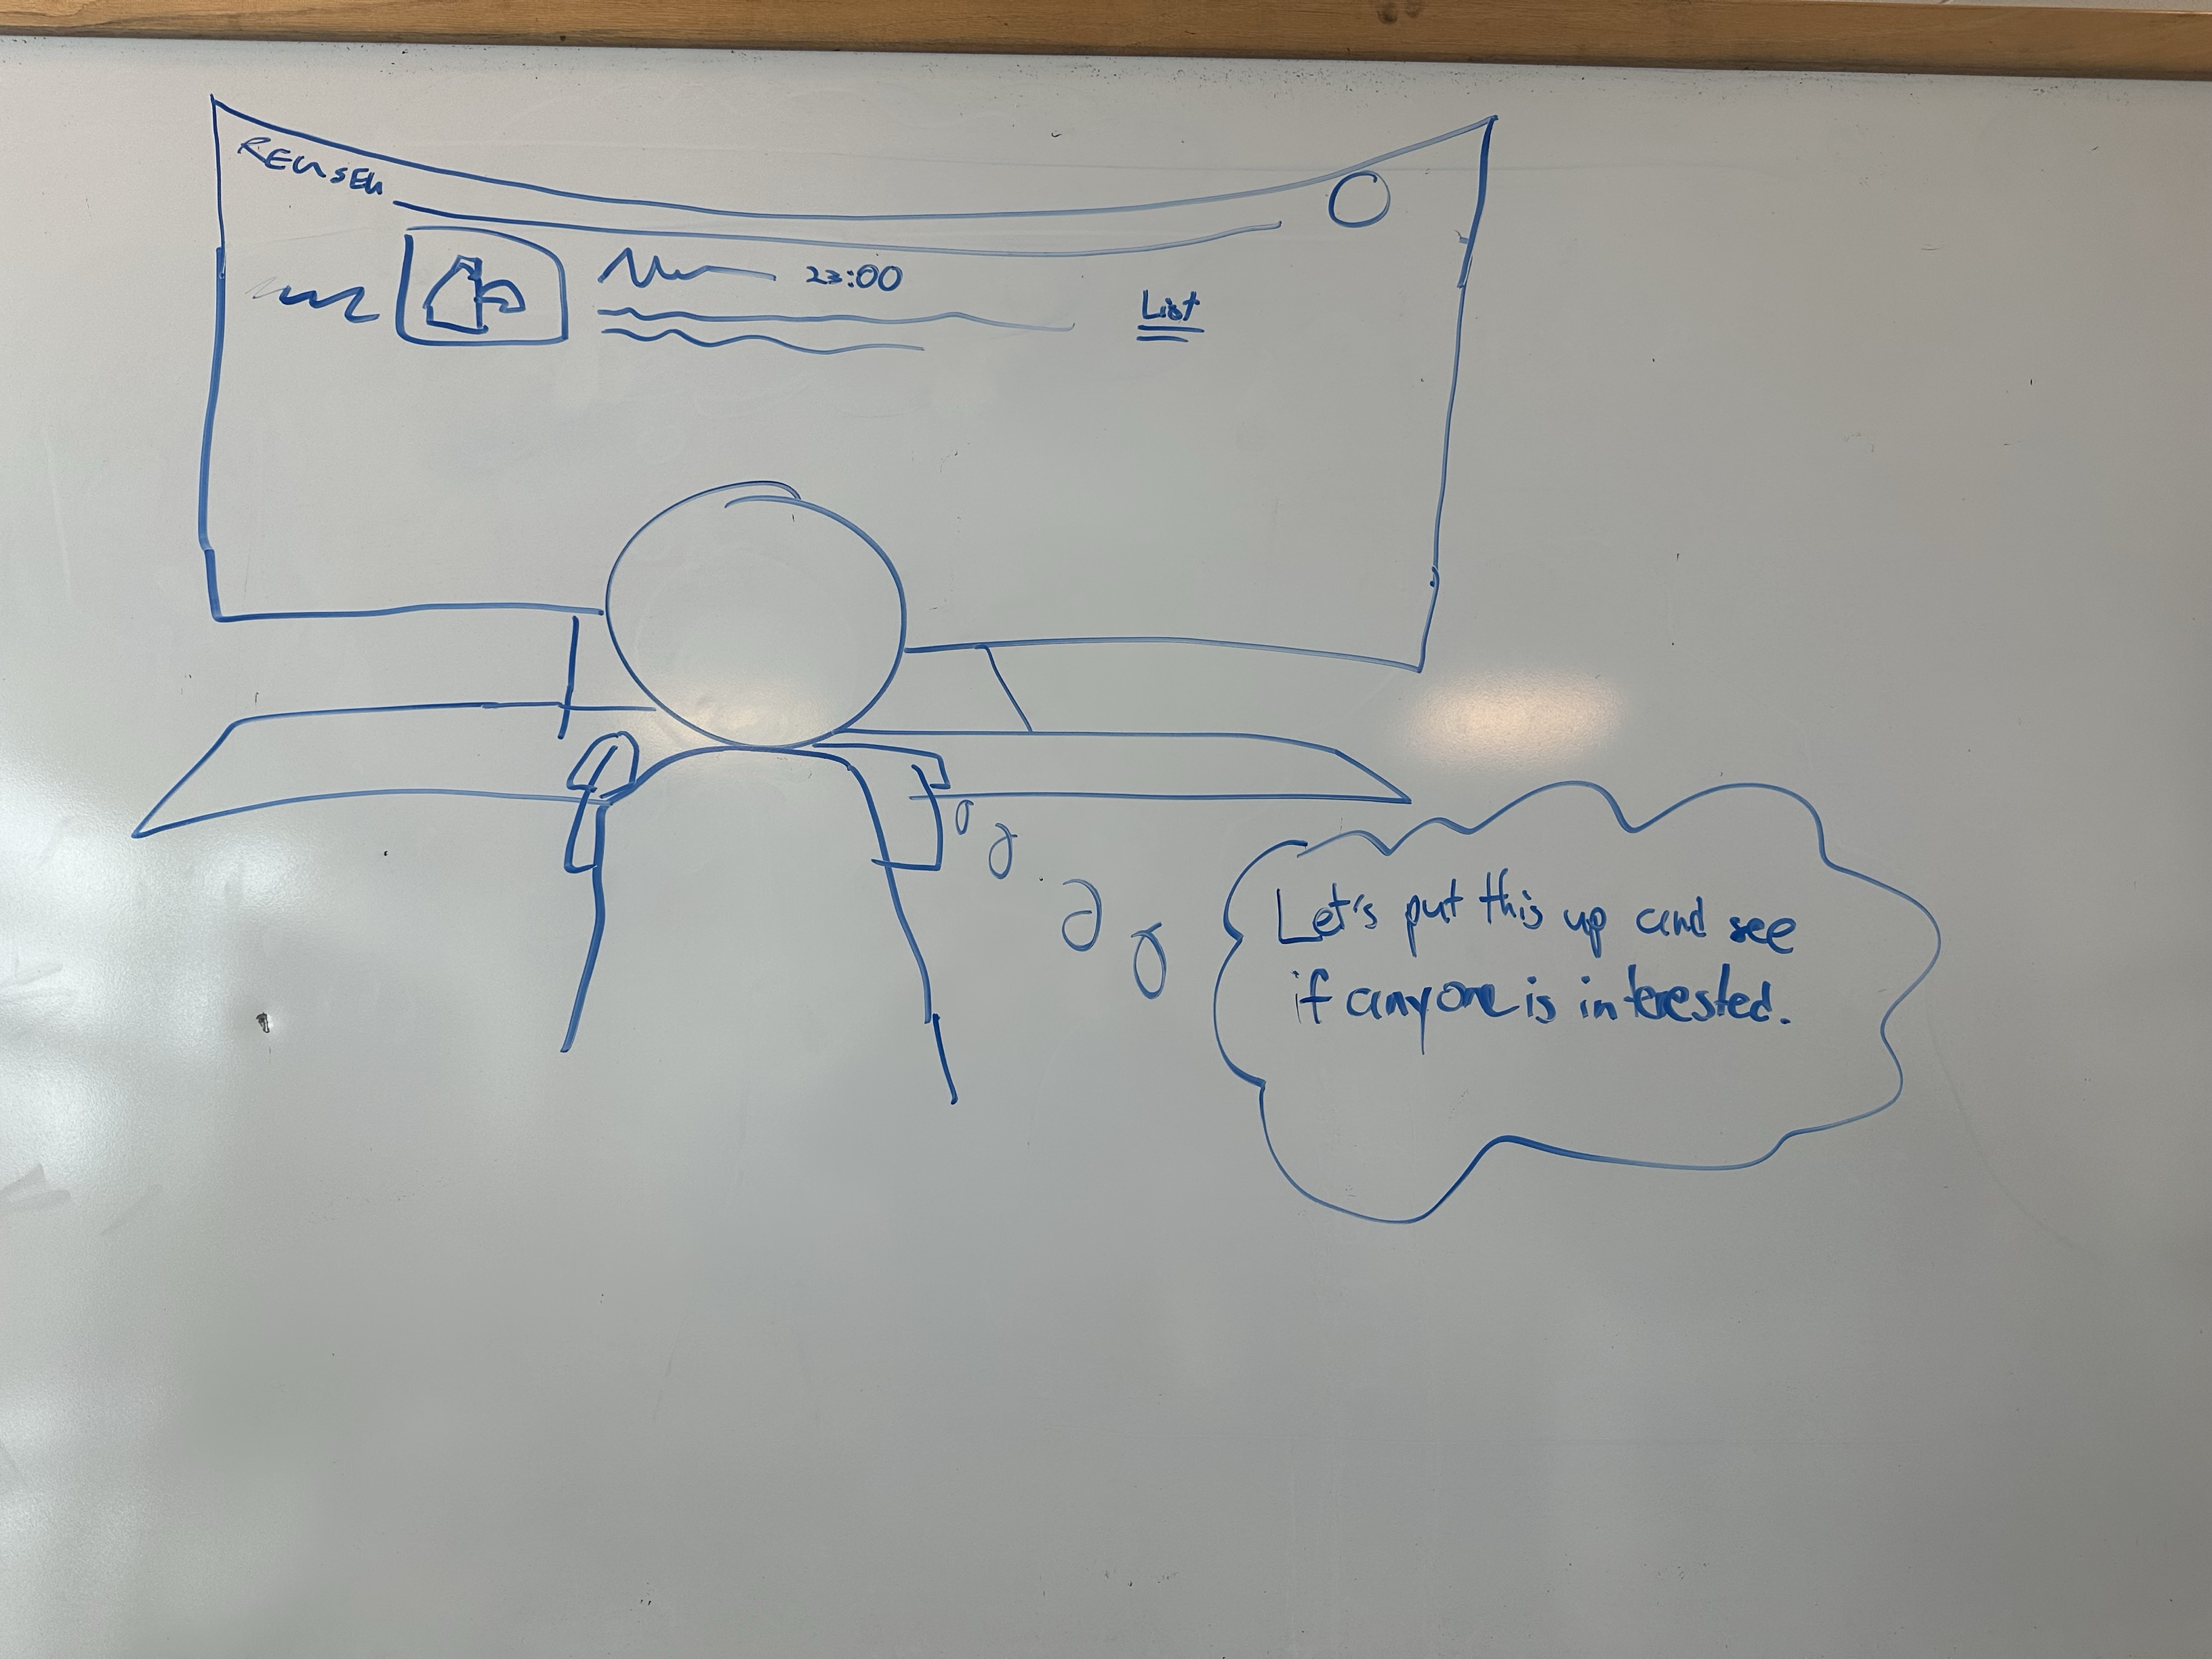 23:00
List
Let's put this up and see
if anyone is interested.